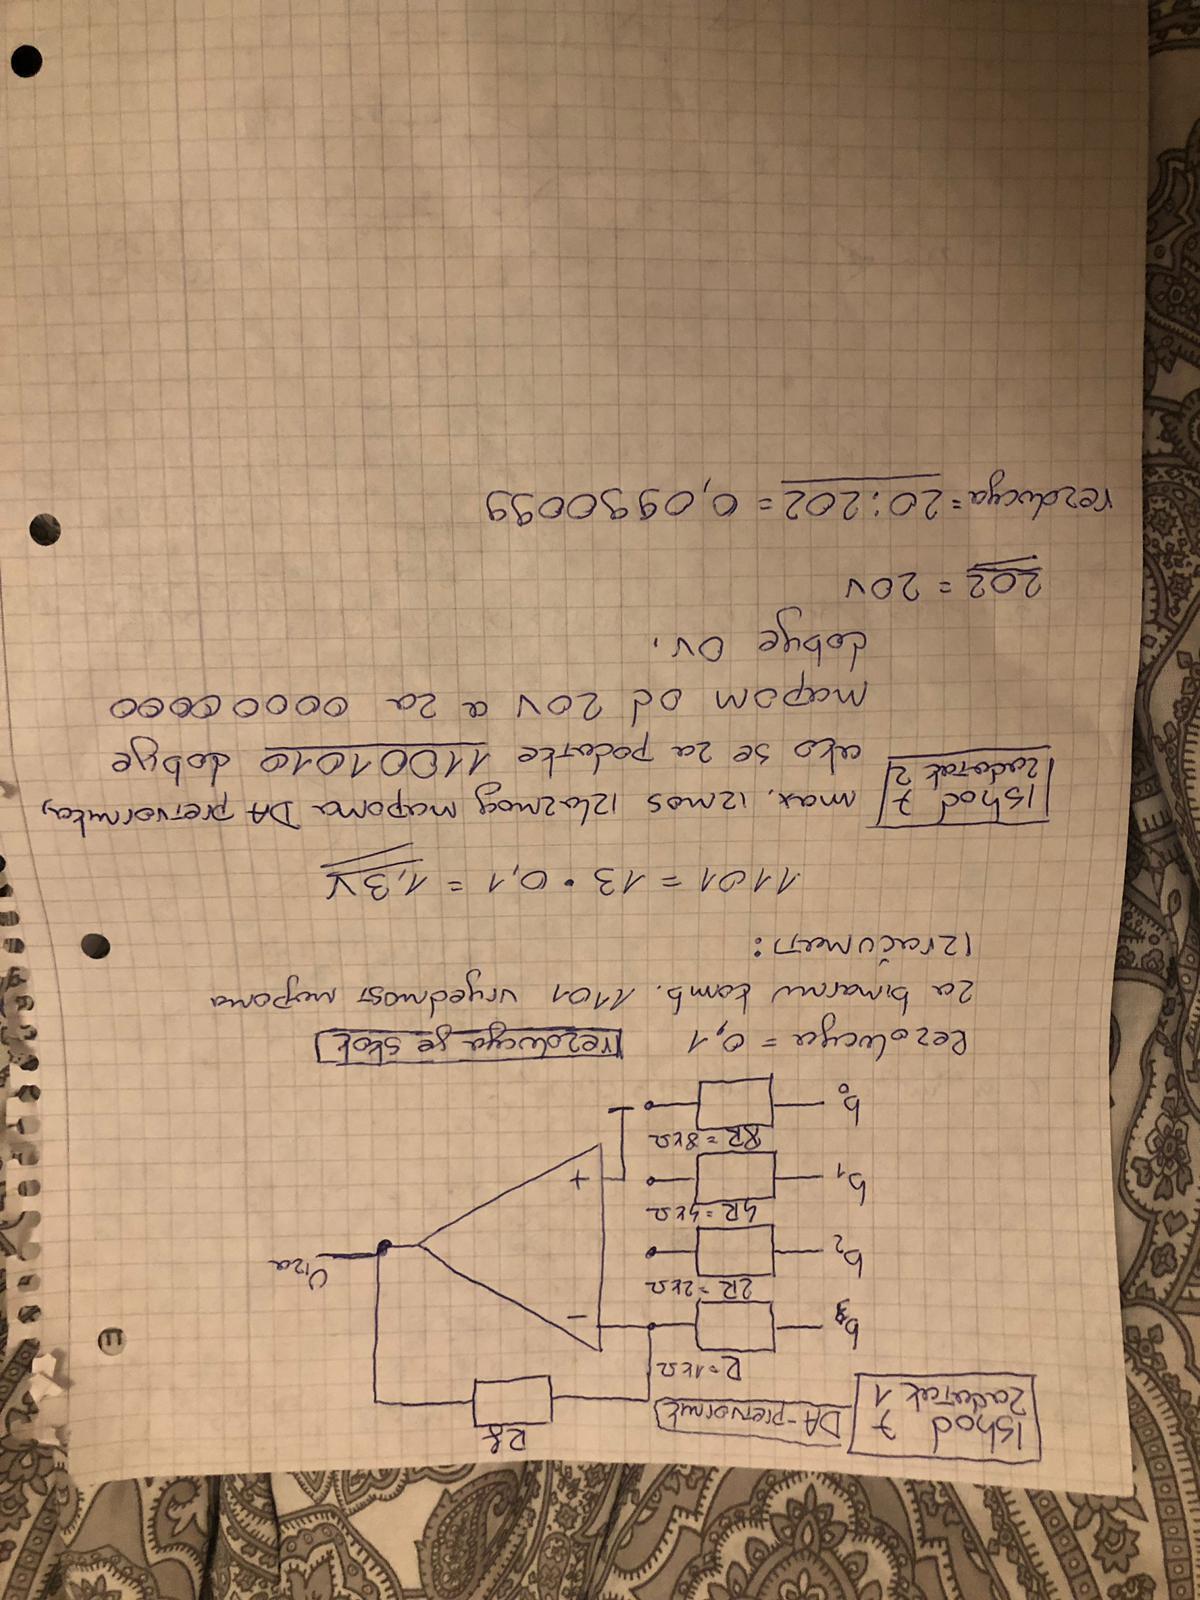 Ishod 7
Zadatak 1
DA-pretvornik
Rf
R=1kΩ
b3
2R=2kΩ
b2
4R=4kΩ
b1
8R=8kΩ
b0
−
+
Uiza
Rezolucija = 0,1 rezolucija je skok
za binarnu komb. 1101 vrijednost napona
izračunati:
1101 = 13 · 0,1 = 1,3V
Ishod 7
Zadatak 2
max. iznos izlaznog napona DA pretvornika,
ako se za podatke 11001010 dobije
napon od 20V a za 00000000
dobije 0V.
202 = 20V
rezolucija = 20:202 = 0,0990099
E